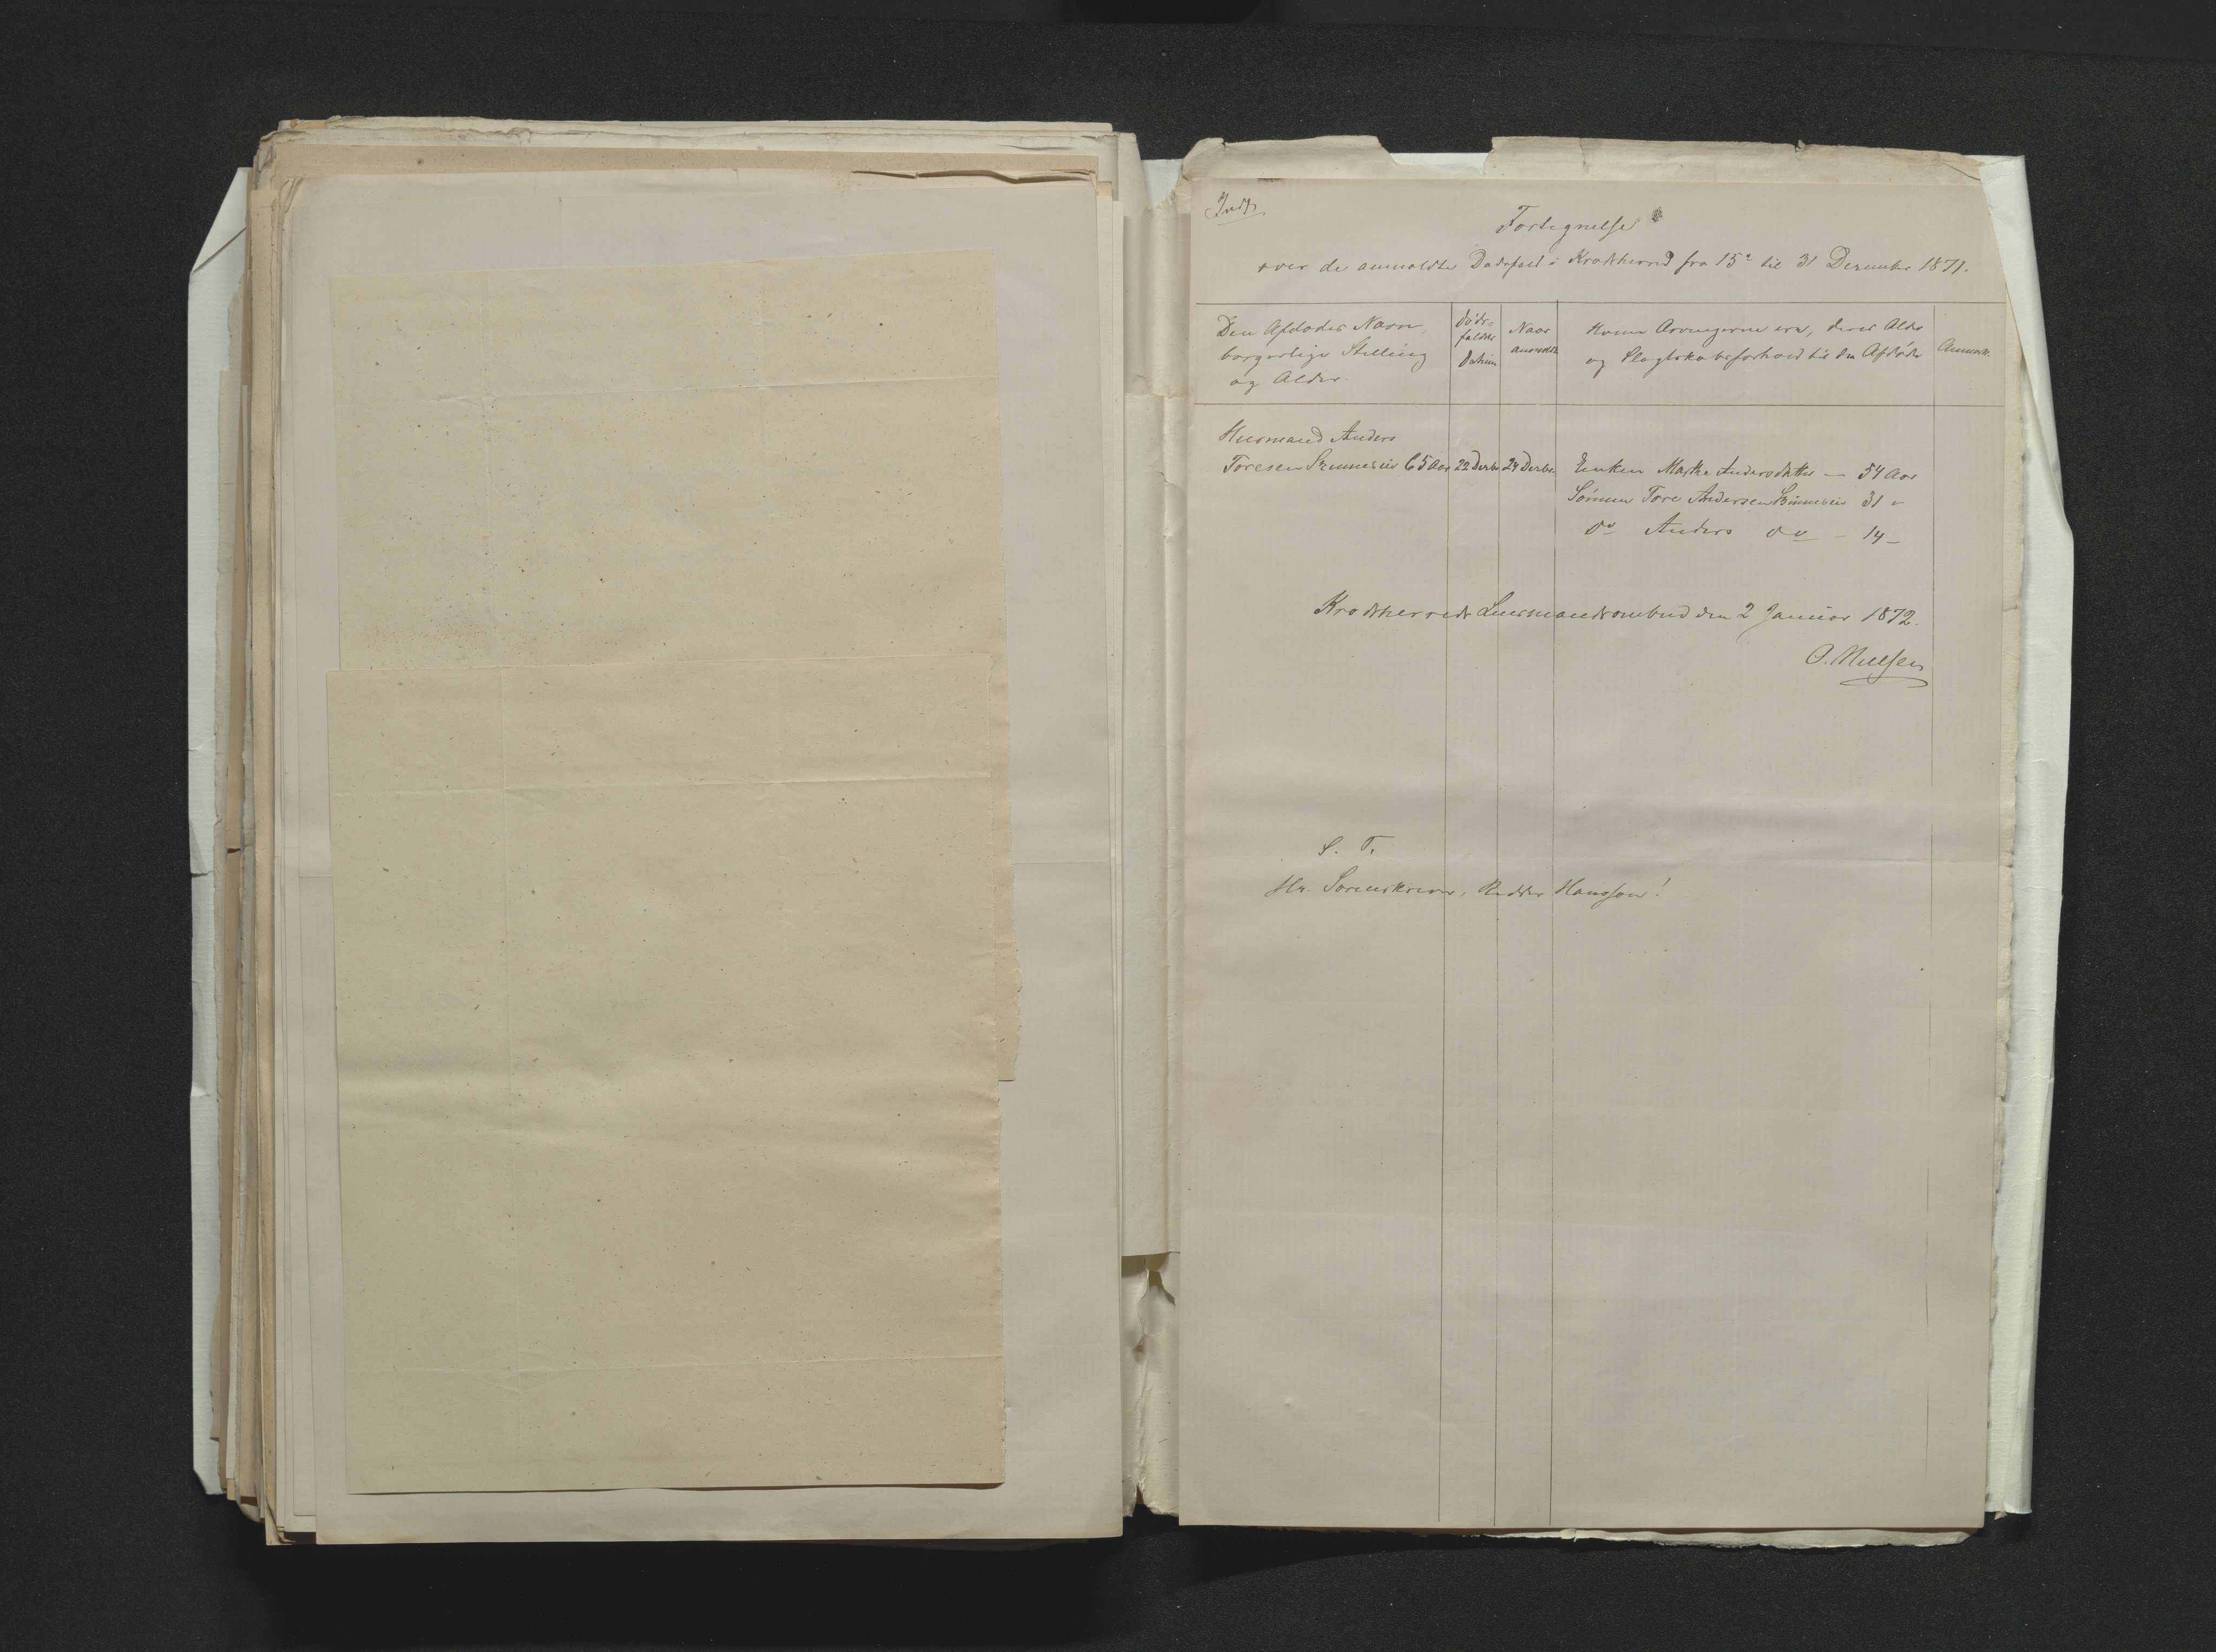 Indf.
Fortegnelse
over de anmeldte Dødsfald i Krødsherred fra 15de til 31 December 1871.
Den Afdødes Navn,
borgerlige Stilling
og Alder.
Døds-
faldets
Datum
Naar
anmeldt
Hvem Arvingerne ere, deres Alder
og Slægtskabsforhold til den Afdøde
Anmærk.
Husmand Anders
Toresen 65 Aar 22 Decbr 24 Decbr
Enken Marthe Andersdatter — 54 Aar
Sønnen Tore Andersen 31 "
Do Anders do — 14 —
Krødsherreds Lensmandsombud den 2 Januar 1872.
O. Nielsen
S. T.
Hr. Sorenskriver, Ridder Hansson!